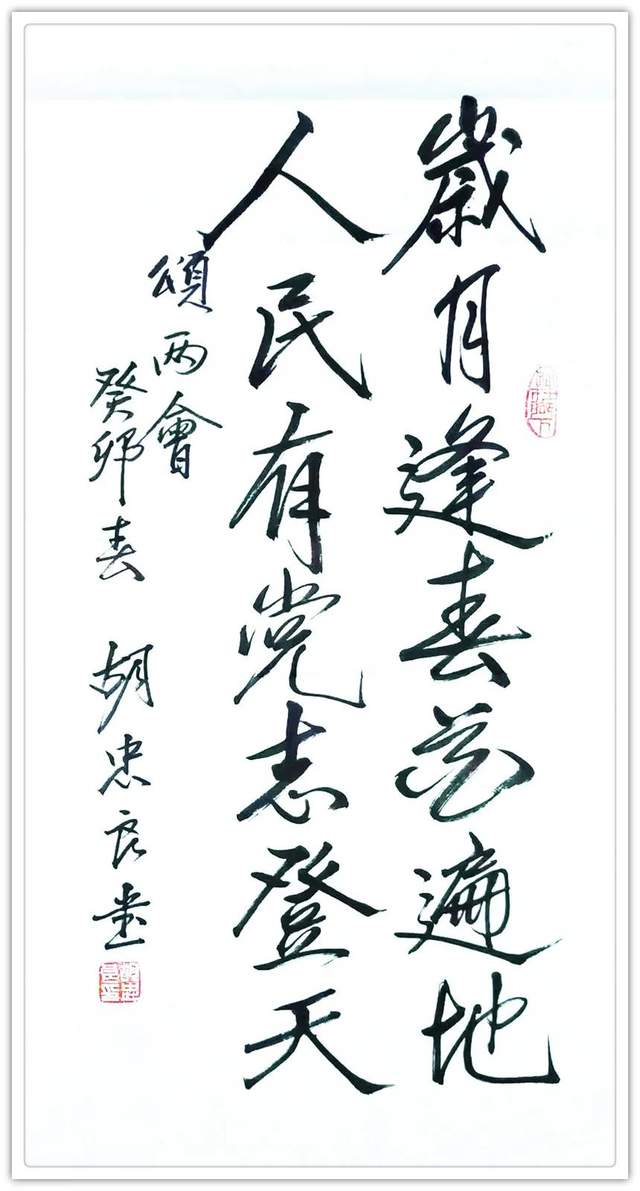 歲月逢春花遍地
人民有党志登天
頌两會
癸卯春 胡忠良書